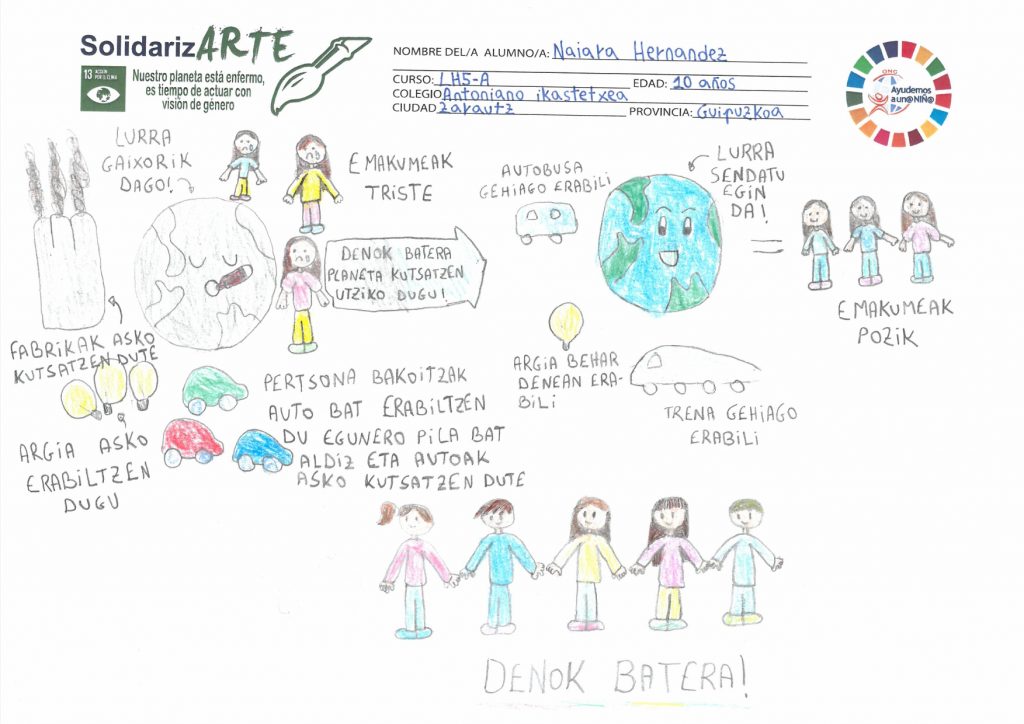 SolidarizARTE
13 ACCIÓN
POR EL CLIMA
Nuestro planeta está enfermo,
es tiempo de actuar con
visión de género
NOMBRE DEL/A ALUMNO/A: Naiara Hernandez
CURSO: LH5-A EDAD: 10 años
COLEGIO Antoniano ikastetxea
CIUDAD Zarautz PROVINCIA: Guipuzkoa
ONG
Ayudemos
a un@ NIÑ@
LURRA
GAIXORIK
DAGO!
EMAKUMEAK
TRISTE
DENOK BATERA
PLANETA KUTSATZEN
UTZIKO DUGU!
FABRIKAK ASKO
KUTSATZEN DUTE
ARGIA ASKO
ERABILTZEN
DUGU
PERTSONA BAKOITZAK
AUTO BAT ERABILTZEN
DU EGUNERO PILA BAT
ALDIZ ETA AUTOAK
ASKO KUTSATZEN DUTE
AUTOBUSA
GEHIAGO ERABILI
LURRA
SENDATU
EGIN
DA!
=
EMAKUMEAK
POZIK
ARGIA BEHAR
DENEAN ERA-
BILI
TRENA GEHIAGO
ERABILI
DENOK BATERA!